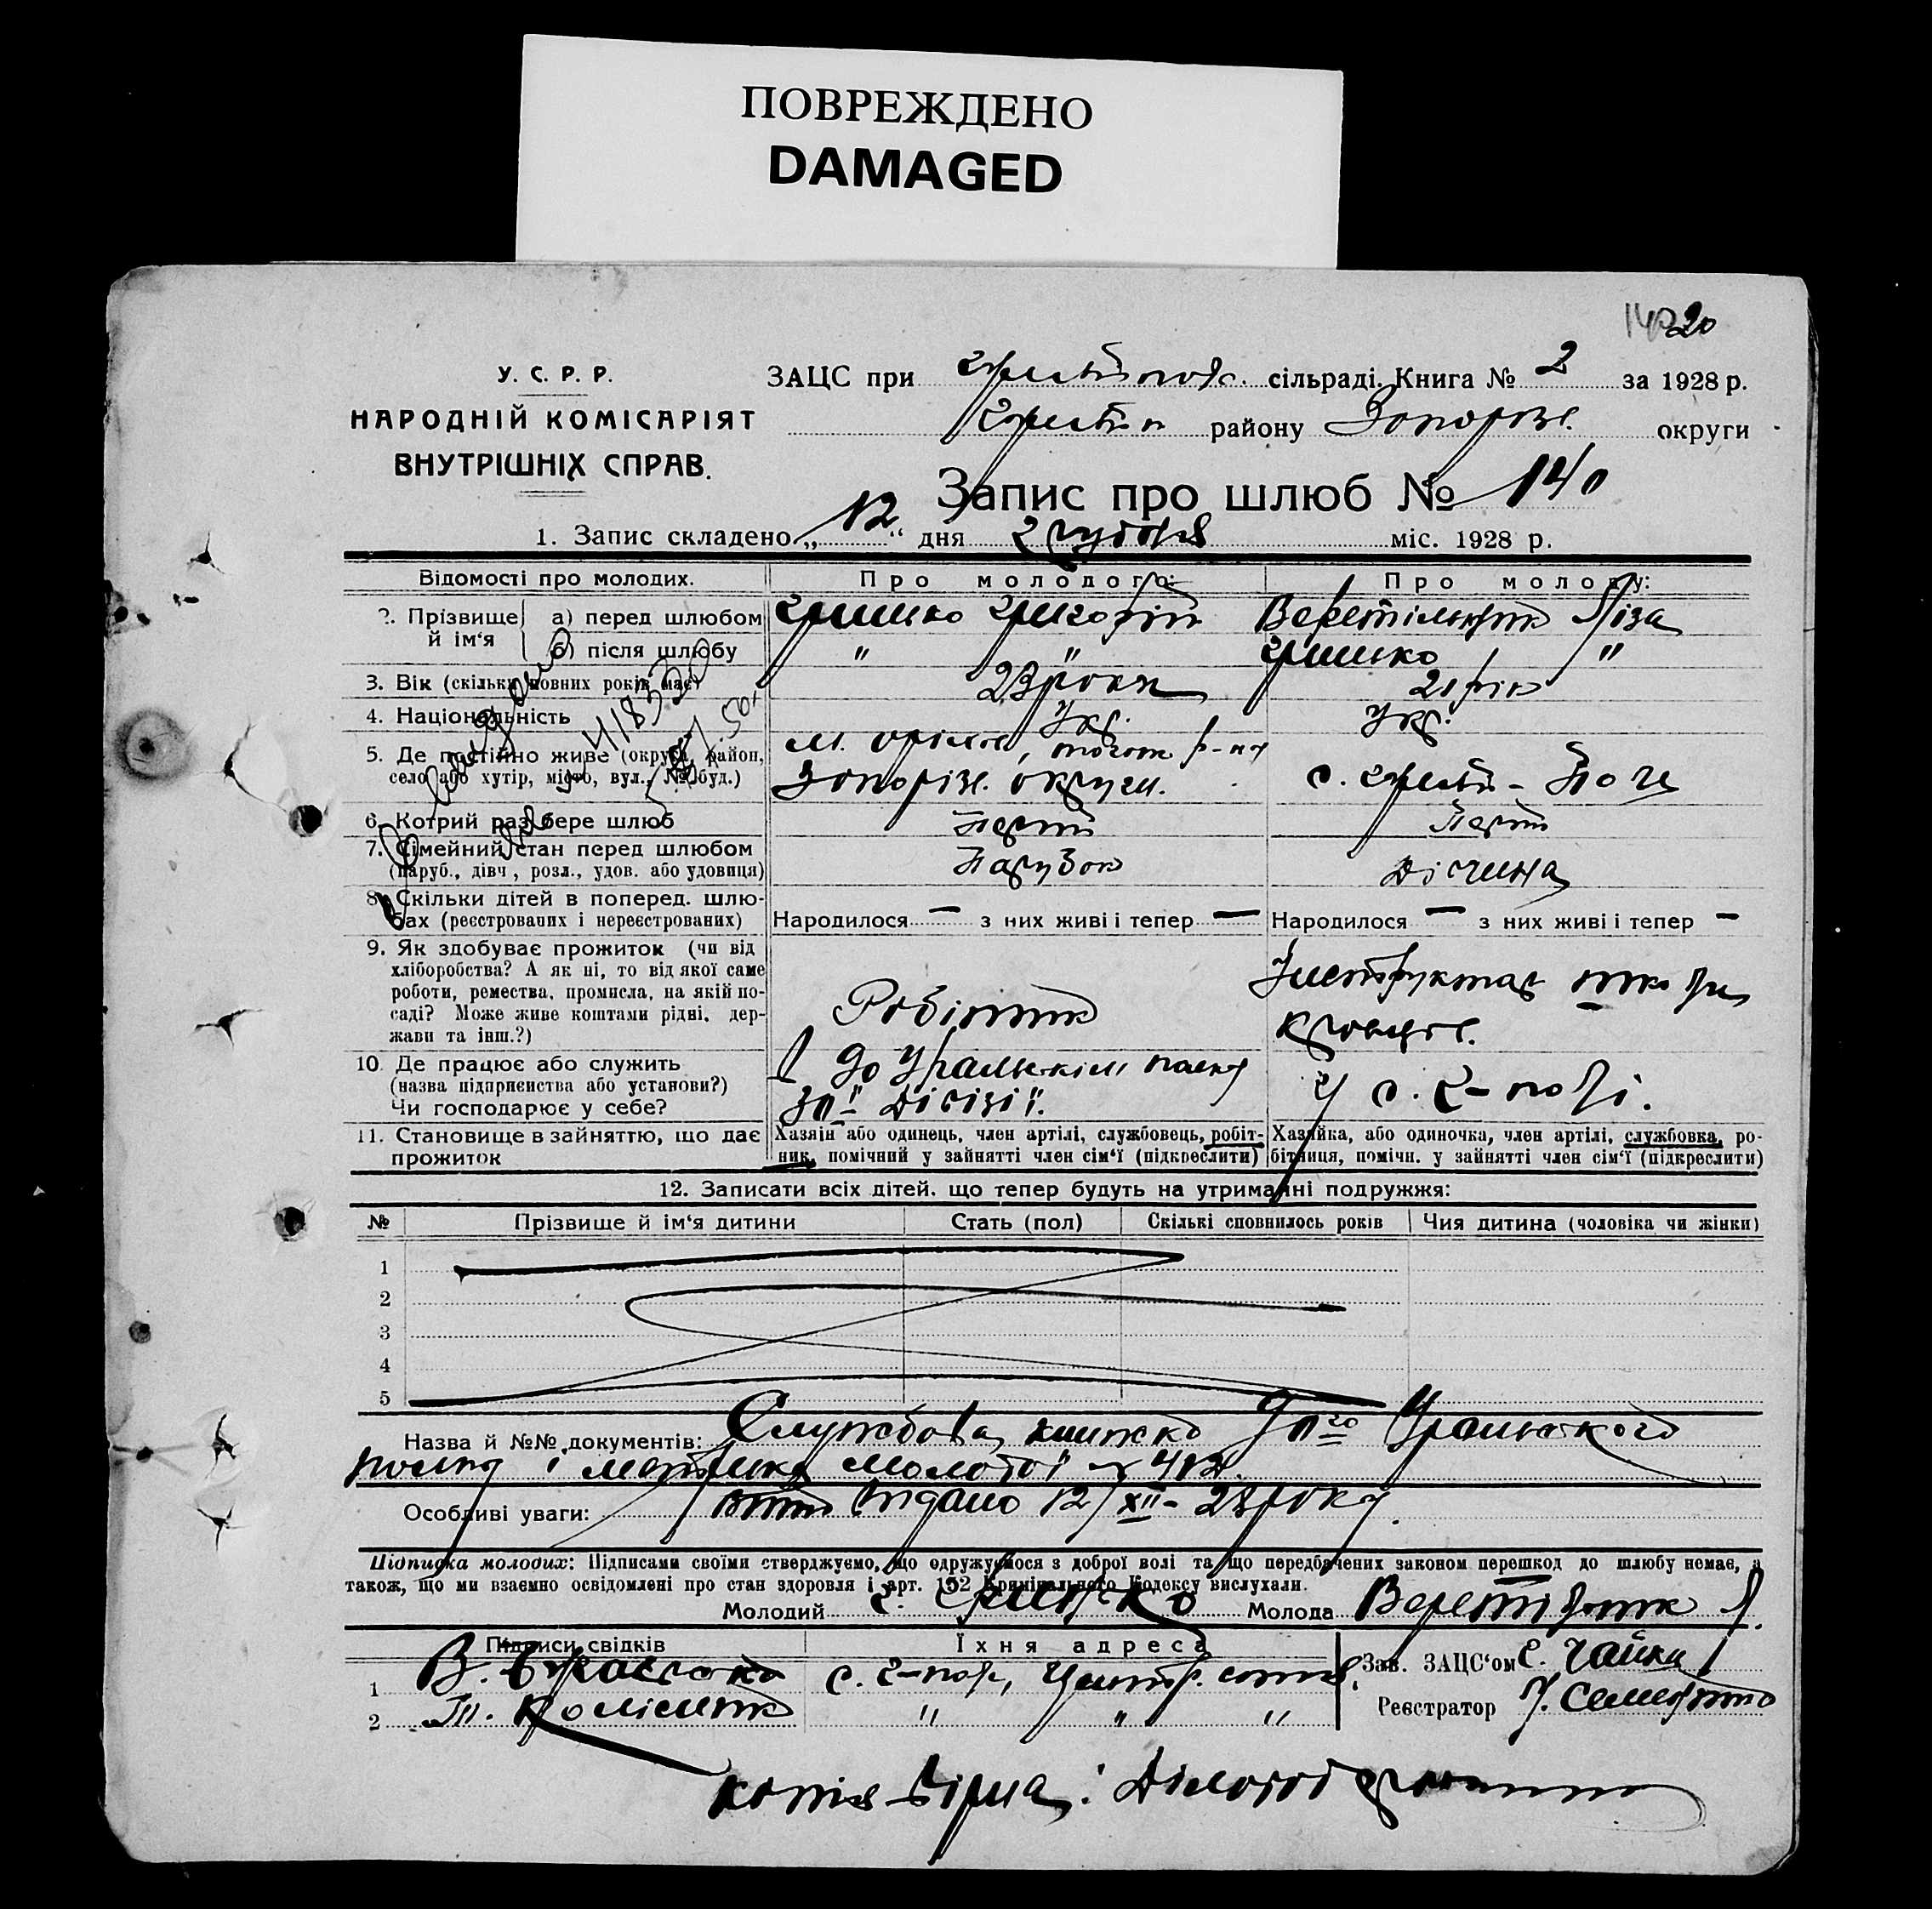 ПОВРЕЖДЕНО
DAMAGED
140 20
У. С. Р. Р.
НАРОДНІЙ КОМІСАРІЯТ
ВНУТРІШНІХ СПРАВ.
ЗАЦС при сільраді. Книга № 2 за 1928 р.
району Запоріж. округи
Запис про шлюб № 140
1. Запис складено „12“ дня грудня міс. 1928 р.
Відомості про молодих. Про молодого: Про молоду:
2. Прізвище й ім‘я а) перед шлюбом Гришко Григорій Веретільник Ліза
б) після шлюбу " " Гришко "
3. Вік (скільки повних років має) 23 роки 20 рік
4. Національність Укр. Укр.
5. Де постійно живе (округа, район, м. Оріхов, того ж р-ну
село або хутір, місто, вул., № буд.) Запоріж. округи. с.
6. Котрий раз бере шлюб Перший Перший
7. Сімейний стан перед шлюбом Парубок Дівчина
(паруб., дівч., розл., удов. або удовиця)
8. Скільки дітей в поперед. шлю-
бах (реєстрованих і нереєстрованих) Народилося — з них живі і тепер — Народилося — з них живі і тепер —
9. Як здобуває прожиток (чи від
хліборобства? А як ні, то від якої саме Інструктар
роботи, ремества, промисла, на якій по-
саді? Може живе коштами рідні, дер- Робітник
жави та інш.?)
10. Де працює або служить 90 Уральскім полку
(назва підприєиства або установи?) 30ї Дівізії. У с. Г-полі.
Чи господарює у себе?
11. Становище в зайняттю, що дає прожиток
Хазяїн або одинець, член артілі, службовець, робіт-
ник, помічний у зайнятті член сім‘ї (підкреслити)
Хазяйка, або одиночка, член артілі, службовка, ро-
бітниця, помічн. у зайнятті член сім‘ї (підкреслити)
12. Записати всіх дітей, що тепер будуть на утриманні подружжя:
№ Прізвище й ім‘я дитини Стать (пол) Скількі сповнилось років Чия дитина (чоловіка чи жінки)
1
2
3
4
5
Назва й №№ документів: Службова книжка 90го Уральского
полку і метрика молодої № 412.
Особливі уваги: видано 12/XII-28 року.
Підписка молодих: Підписами своїми стверджуємо, що одружуємося з доброї волі та що передбачених законом перешкод до шлюбу немає, а
також, що ми взаємно освідомлені про стан здоровля і арт. 152 Кримінального Кодексу вислухали.
Молодий Г. Гришко Молода Веретільник Л.
Підписи свідків Їхня адреса
1 В. с. Г-пол, Центр. сотня. Зав. ЗАЦС‘ом С. Чайка
2 Колісник " " " Реєстратор
копія вірна: Діловод